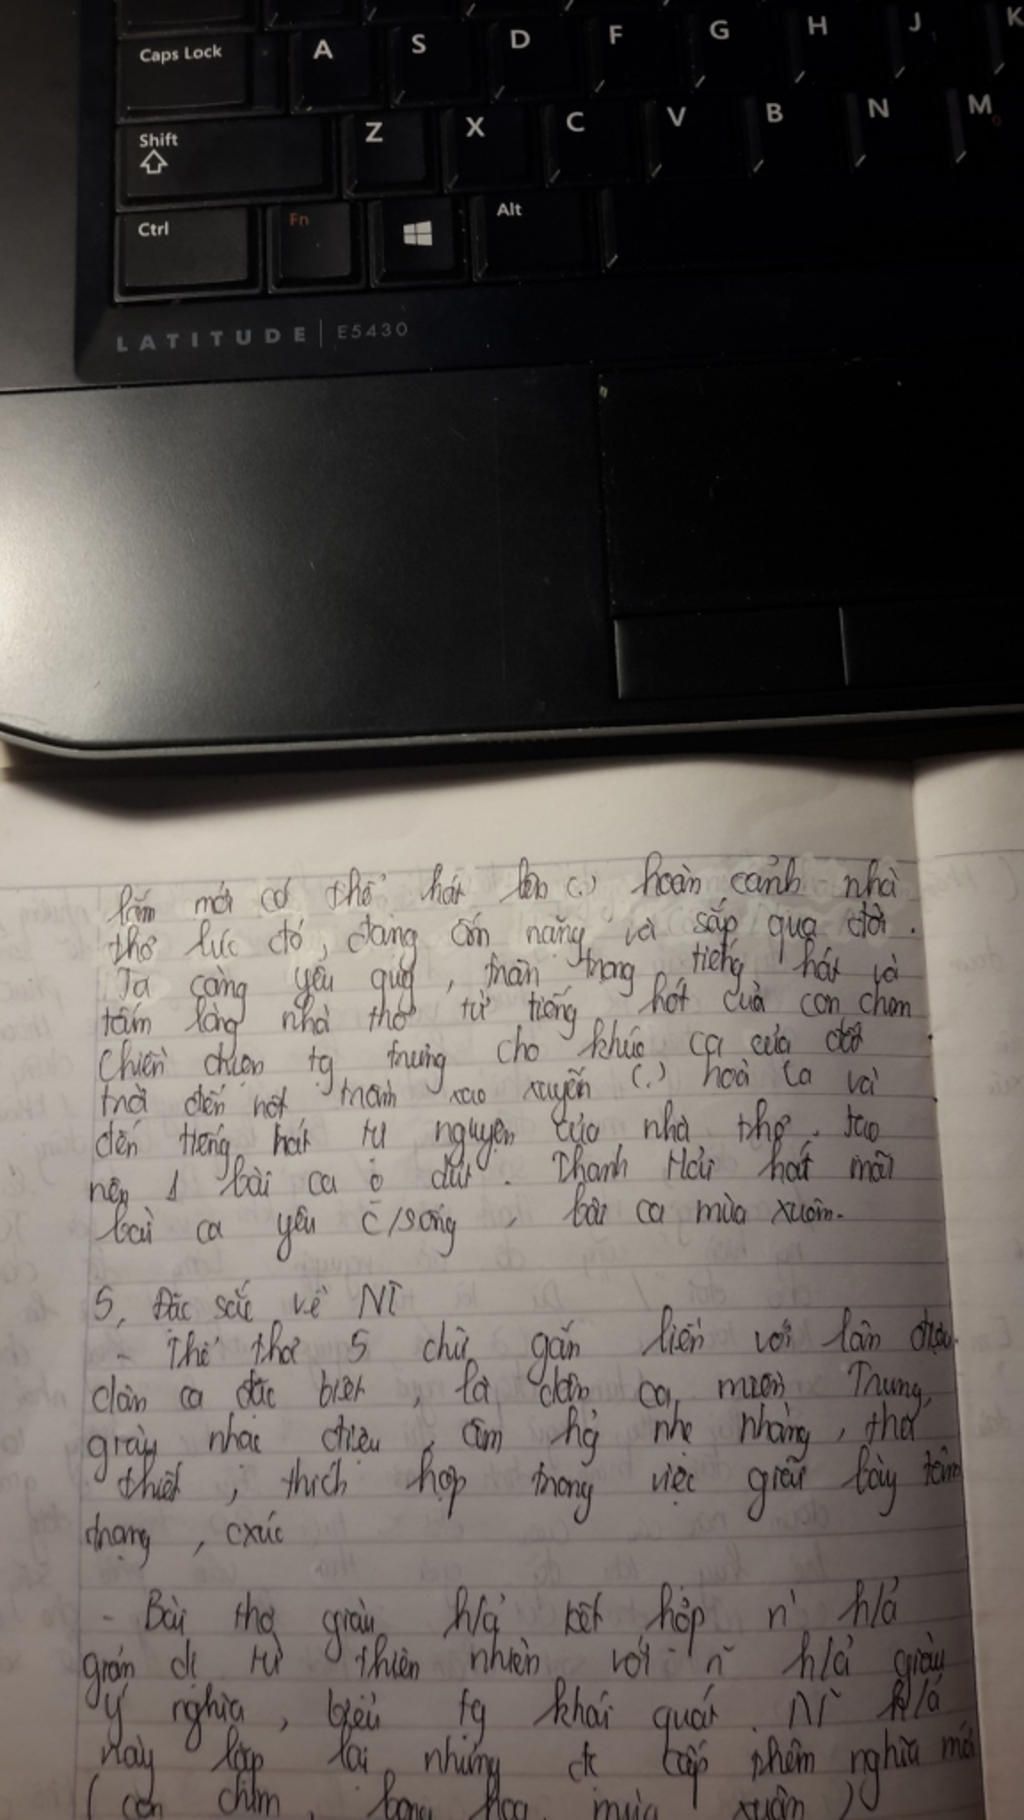 Caps Lock A S D F G H J K
Shift Z X C V B N M
Ctrl Fn Alt
LATITUDE | E5430
lắm mới có thể hát lên (.) hoàn cảnh nhà
thơ lúc đó, đang ốm nặng và sắp qua đời.
Ta càng yêu quý, trân trọng tiếng hát và
tấm lòng nhà thơ từ tiếng hót của con chim
chiền chiện tg trưng cho khúc ca của đất
trời đến nốt trầm xao xuyến (.) hoà ca và
đến tiếng hát tự nguyện của nhà thơ. tạo
nên 1 bài ca o dứt. Thanh Hải hát mãi
bài ca yêu c/sống, bài ca mùa xuân.
5, Đặc sắc về NT
- Thể thơ 5 chữ gắn liền với làn điệu
dân ca đặc biệt, là dân ca miền Trung,
giàu nhạc điệu, âm hg nhẹ nhàng, tha
thiết, thích hợp trong việc giãi bày tâm
trạng, cxúc
- Bài thơ giàu h/ả kết hợp n~ h/ả
giản dị từ thiên nhiên với n~ h/ả giàu
ý nghĩa, biểu tg khái quát. NT h/ả
này lặp lại những đc cấp thêm nghĩa mới
(con chim, bông hoa, mùa xuân)